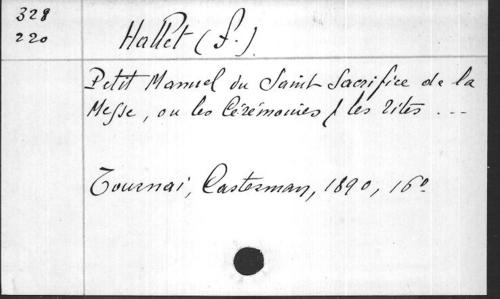 328
220
Hallet (F.)
Petit Manuel du Saint Sacrifice de la
Messe, ou les Cérémonies & les rites ...
Tournai, Casterman, 1890, 16°